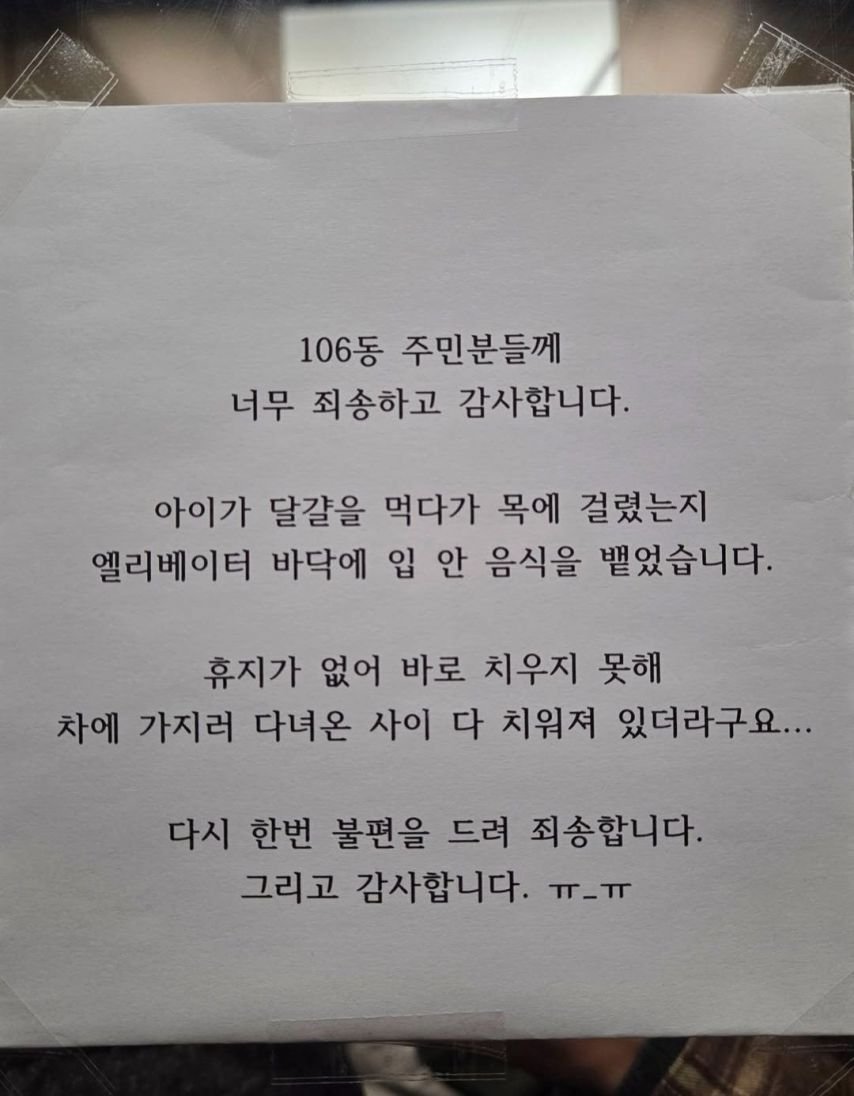 106동 주민분들께
너무 죄송하고 감사합니다.
아이가 달걀을 먹다가 목에 걸렸는지
엘리베이터 바닥에 입 안 음식을 뱉었습니다.
휴지가 없어 바로 치우지 못해
차에 가지러 다녀온 사이 다 치워져 있더라구요...
다시 한번 불편을 드려 죄송합니다.
그리고 감사합니다. ㅠ_ㅠ